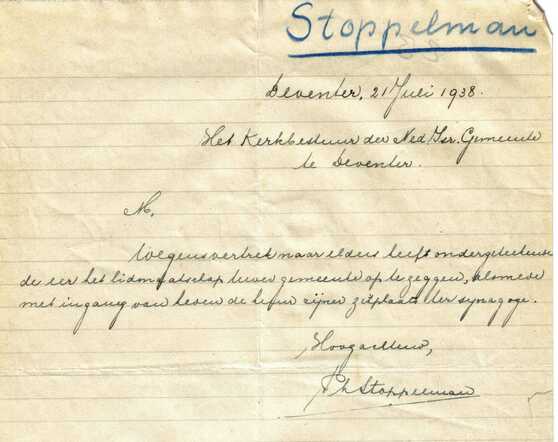 Stoppelman
Deventer, 21 Juli 1938.
Het Kerkbestuur der Ned. Isr. Gemeente
te Deventer.
M.
Wegens vertrek naar elders heeft ondergeteekende
de eer het lidmaatschap Uwer gemeente op te zeggen, alsmede
met ingang van heden de huur zijner zitplaats der synagoge.
Hoogachtend,
Ph Stoppelman